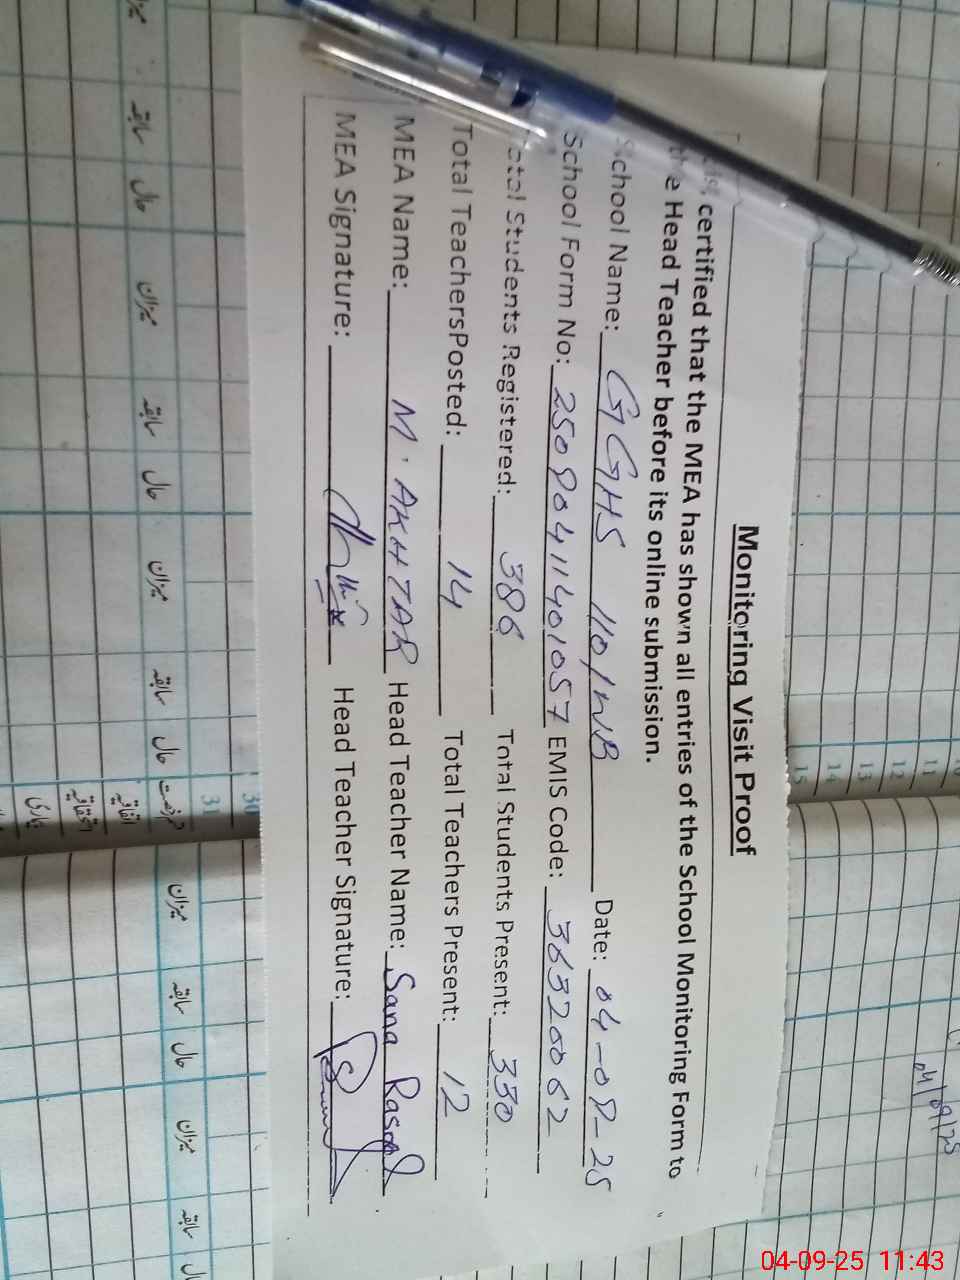 Monitoring Visit Proof
certified that the MEA has shown all entries of the School Monitoring Form to
the Head Teacher before its online submission.
School Name: GGHS 110/WB Date: 04-09-25
School Form No: EMIS Code:
Total Students Registered: 386 Total Students Present: 330
Total TeachersPosted: 14 Total Teachers Present: 12
MEA Name: M. AKHTAR Head Teacher Name: Sana Rasool
MEA Signature: Head Teacher Signature:
04/09/25
11
12
13
14
15
30
31
میزان
سابقہ
حال
میزان
سابقہ
حال
میزان
سابقہ
حال
میزان
سابقہ
حال
میزان
سابقہ
حال
رخصت
اتفاقیہ
استحقاقیہ
بیماری
04-09-25 11:43